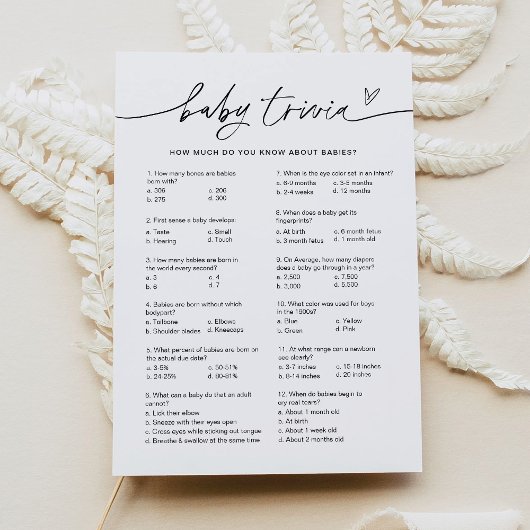 baby trivia
HOW MUCH DO YOU KNOW ABOUT BABIES?
1. How many bones are babies
born with?
a. 306 c. 206
b. 275 d. 300
2. First sense a baby develops:
a. Taste c. Small
b. Hearing d. Touch
3. How many babies are born in
the world every second?
a. 3 c. 4
b. 6 d. 7
4. Babies are born without which
bodypart?
a. Tailbone c. Elbows
b. Shoulder blades d. Kneecaps
5. What percent of babies are born on
the actual due date?
a. 3-5% c. 50-51%
b. 24-25% d. 80-81%
6. What can a baby do that an adult
cannot?
a. Lick their elbow
b. Sneeze with their eyes open
c. Cross eyes while sticking out tongue
d. Breathe & swallow at the same time
7. When is the eye color set in an infant?
a. 6-9 months c. 3-5 months
b. 2-4 weeks d. 12 months
8. When does a baby get its
fingerprints?
a. At birth c. 6 month fetus
b. 3 month fetus d. 1 month old
9. On Average, how many diapers
does a baby go through in a year?
a. 2,500 c. 7,500
b. 3,000 d. 5,500
10. What color was used for boys
in the 1900s?
a. Blue c. Yellow
b. Green d. Pink
11. At what range can a newborn
see clearly?
a. 3-7 inches c. 15-18 inches
b. 8-14 inches d. 20 inches
12. When do babies begin to
cry real tears?
a. About 1 month old
b. At birth
c. About 1 week old
d. About 2 months old